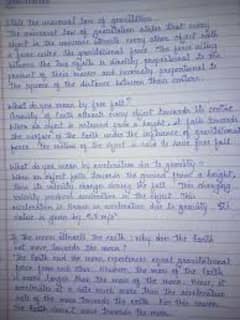 State the universal law of gravitation.
The universal law of gravitation states that every
object in the universe attracts every other object with
a force called the gravitational force. The force acting
between the two objects is directly proportional to the
product of their masses and inversely proportional to
the square of the distance between their centers.
What do you mean by free fall?
Gravity of Earth attracts every object towards its center.
When an object is released from a height, it falls towards
the surface of the Earth under the influence of gravitational
force. The motion of the object is said to have free fall.
What do you mean by acceleration due to gravity?
When an object falls towards the ground from a height,
then its velocity changes during the fall. This changing
velocity produces acceleration in the object. This
acceleration is known as acceleration due to gravity. Its
value is given by 9.8 m/s²
If the moon attracts the earth, why does the Earth
not move towards the moon?
The Earth and the moon experience equal gravitational
force from each other. However, the mass of the Earth
is much larger than the mass of the Moon. Hence, it
accelerates at a rate much more than the acceleration
rate of the moon towards the Earth. For this reason,
the Earth doesn't move towards the moon.